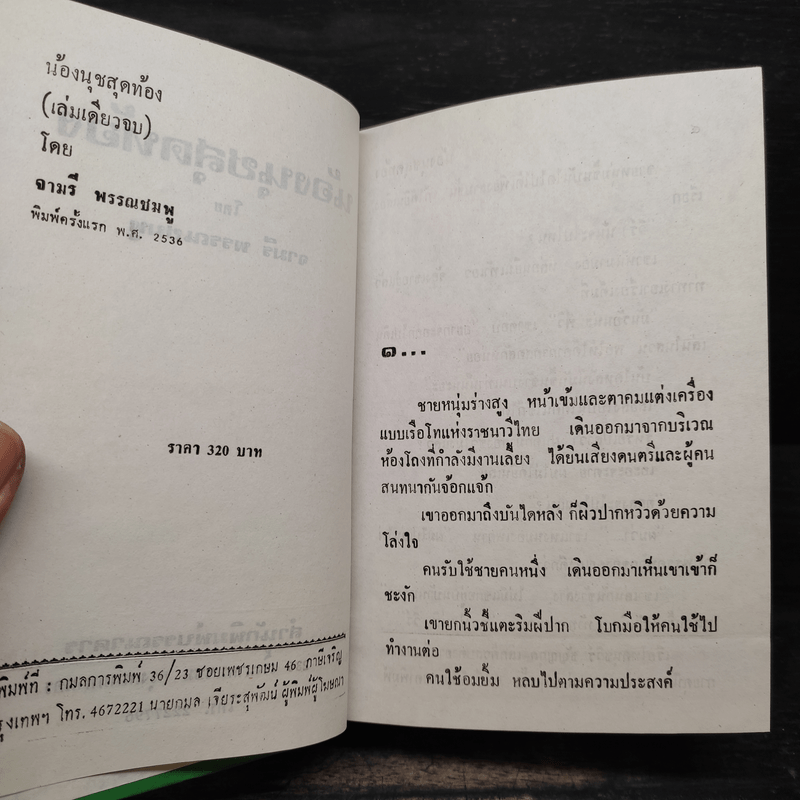 น้องนุชสุดท้อง
(เล่มเดียวจบ)
โดย
จามรี พรรณชมพู
พิมพ์ครั้งแรก พ.ศ. 2536
ราคา 320 บาท
พิมพ์ที่ : กมลการพิมพ์ 36/23 ซอยเพชรเกษม 46 ภาษีเจริญ
รุงเทพฯ โทร. 4672221 นายกมล เจียระสุพัฒน์ ผู้พิมพ์ผู้โฆษณา
๑...
ชายหนุ่มร่างสูง หน้าเข้มและตาคมแต่งเครื่อง
แบบเรือโทแห่งราชนาวีไทย เดินออกมาจากบริเวณ
ห้องโถงที่กำลังมีงานเลี้ยง ได้ยินเสียงดนตรีและผู้คน
สนทนากันจ้อกแจ้ก
เขาออกมาถึงบันไดหลัง ก็ผิวปากหวิวด้วยความ
โล่งใจ
คนรับใช้ชายคนหนึ่ง เดินออกมาเห็นเขาเข้าก็
ชะงัก
เขายกนิ้วชี้แตะริมฝีปาก โบกมือให้คนใช้ไป
ทำงานต่อ
คนใช้อมยิ้ม หลบไปตามความประสงค์